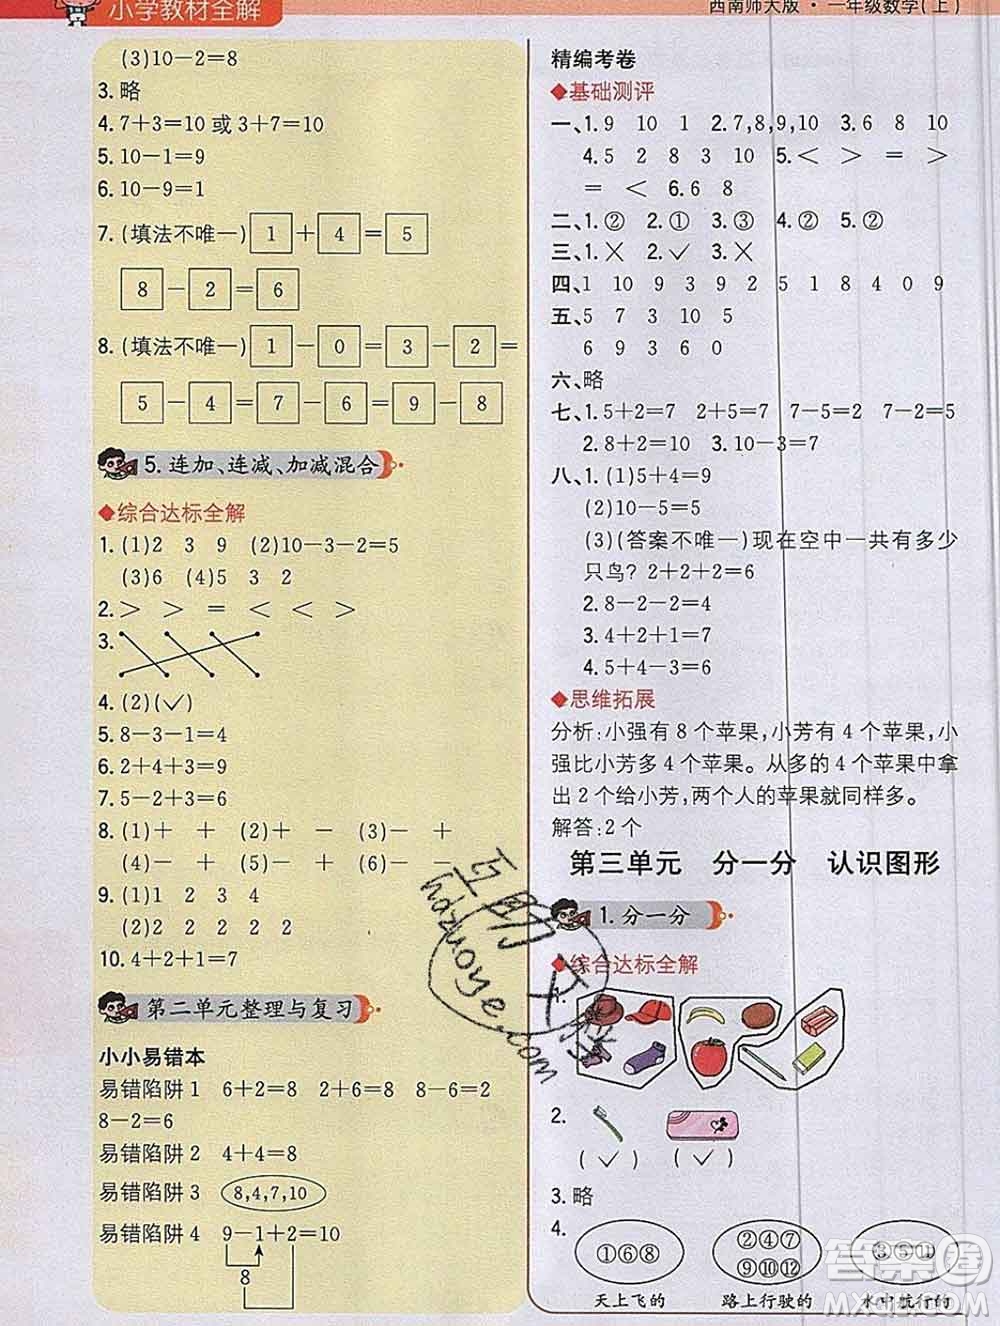 小学教材全解
西南师大版·一年级数学(上)
(3)10－2＝8
3. 略
4. 7＋3＝10 或 3＋7＝10
5. 10－1＝9
6. 10－9＝1
7. (填法不唯一) 1 ＋ 4 ＝ 5
8 － 2 ＝ 6
8. (填法不唯一) 1 － 0 ＝ 3 － 2 ＝
5 － 4 ＝ 7 － 6 ＝ 9 － 8
5. 连加、连减、加减混合
◆综合达标全解
1. (1)2 3 9 (2)10－3－2＝5
(3)6 (4)5 3 2
2. ＞ ＞ ＝ ＜ ＜ ＞
3.
4. (2)(✓)
5. 8－3－1＝4
6. 2＋4＋3＝9
7. 5－2＋4＝7
8. (1)＋ ＋ (2)＋ － (3)－ ＋
(4)－ － (5)＋ － (6)－ ＋
9. (1)1 2 3 4
(2)2 2 2 2 2
10. 4＋2＋1＝7
第二单元整理与复习
小小易错本
易错陷阱 1 6＋2＝8 2＋6＝8 8－6＝2
8－2＝6
易错陷阱 2 4＋4＝8
易错陷阱 3 8,4,7,10
易错陷阱 4 9－1＋2＝10
8
精编考卷
◆基础测评
一、1. 9 10 1 2. 7,8,9,10 3. 6 8 10
4. 5 2 8 3 10 5. ＜ ＞ ＝ ＞
＝ ＜ 6. 6 8
二、1. ② 2. ① 3. ③ 4. ② 5. ②
三、1. ✕ 2. ✓ 3. ✕
四、1 10 9 3 9 2 5 1 8 4 0 9
五、5 7 3 10 5
6 9 3 6 0
六、略
七、1. 5＋2＝7 2＋5＝7 7－5＝2 7－2＝5
2. 8＋2＝10 10－3＝7
八、1. (1)5＋4＝9
(2)10－5＝5
(3)(答案不唯一)现在空中一共有多少
只鸟? 2＋2＋2＝6
2. 8－2－2＝4
3. 4＋2＋1＝7
4. 5＋4－3＝6
◆思维拓展
分析:小强有 8 个苹果,小芳有 4 个苹果,小
强比小芳多 4 个苹果。从多的 4 个苹果中拿
出 2 个给小芳,两个人的苹果就同样多。
解答:2 个
第三单元 分一分 认识图形
1. 分一分
◆综合达标全解
1.
2.
(✓) (✓)
3. 略
4. ①⑥⑧ ②④⑦ ③⑤⑪
⑨⑩⑫
天上飞的 路上行驶的 水中航行的